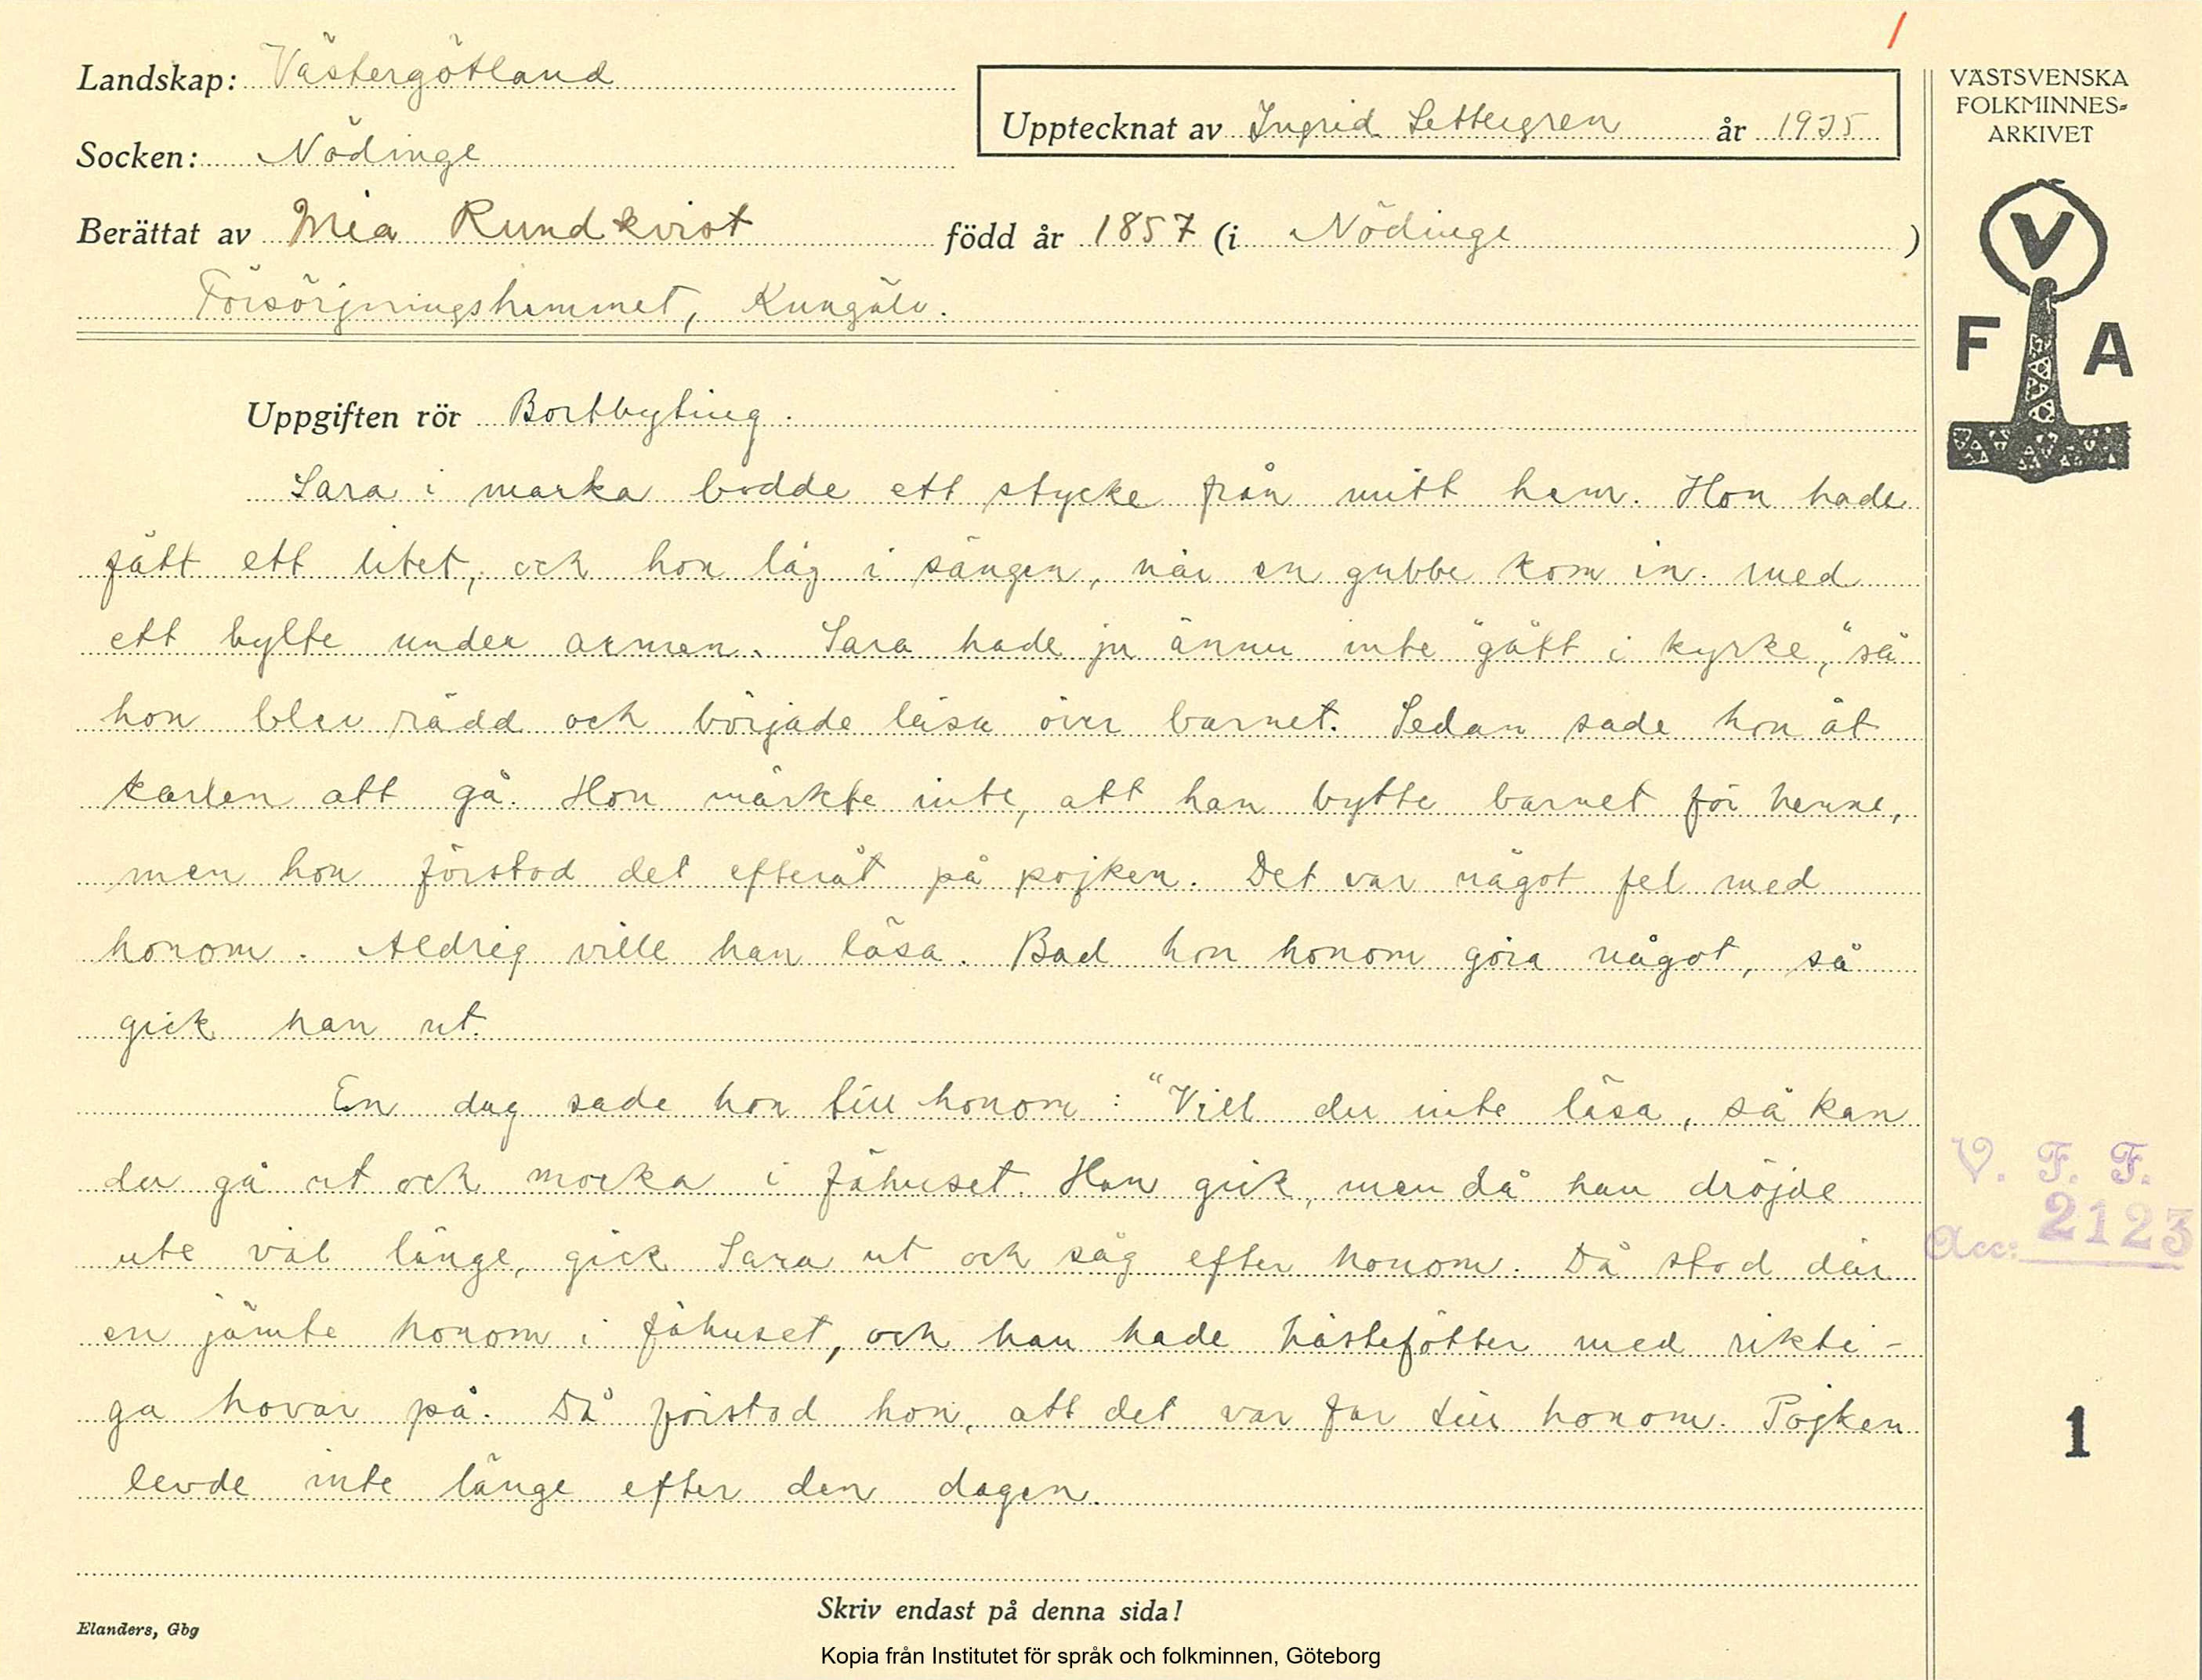 /
Landskap: Västergötland
Upptecknat av Ingrid Settergren år 1935
Socken: Nödinge
Berättat av Mia Rundkvist född år 1857 (i Nödinge )
Försörjningshemmet, Kungälv.
VÄSTSVENSKA
FOLKMINNES=
ARKIVET
V
F A
Uppgiften rör Bortbyting.
Sara i marka bodde ett stycke från mitt hem. Hon hade
fått ett litet, och hon låg i sängen, när en gubbe kom in med
ett bylte under armen. Sara hade ju ännu inte "gått i kyrke," så
hon blev rädd och började läsa över barnet. Sedan sade hon åt
karlen att gå. Hon märkte inte, att han bytte barnet för henne,
men hon förstod det efteråt på pojken. Det var något fel med
honom. Aldrig ville han läsa. Bad hon honom göra något, så
gick han ut.
En dag sade hon till honom: "Vill du inte läsa, så kan
du gå ut och mocka i fähuset. Han gick, men då han dröjde
ute väl länge, gick Sara ut och såg efter honom. Då stod där
en jämte honom i fähuset, och han hade hästefötter med rikti-
ga hovar på. Då förstod hon, att det var far till honom. Pojken
levde inte länge efter den dagen.
V. F. F.
Acc: 2123
1
Skriv endast på denna sida!
Elanders, Gbg
Kopia från Institutet för språk och folkminnen, Göteborg